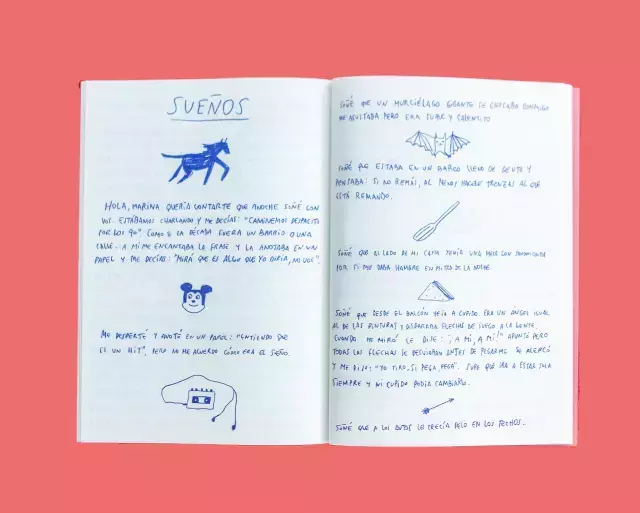 SUEÑOS
HOLA, MARINA QUERÍA CONTARTE QUE ANOCHE SOÑÉ CON
VOS. ESTÁBAMOS CHARLANDO Y ME DECÍAS: "CAMINEMOS DESPACITO
POR LOS 90". COMO SI LA DÉCADA FUERA UN BARRIO O UNA
CALLE. A MÍ ME ENCANTABA LA FRASE Y LA ANOTABA EN UN
PAPEL Y ME DECÍAS: "MIRÁ QUE ES ALGO QUE YO DIRÍA, NO VOS".
ME DESPERTÉ Y ANOTÉ EN UN PAPEL: "ENTIENDO QUE
ES UN HIT", PERO NO ME ACUERDO CÓMO ERA EL SUEÑO.
SOÑÉ QUE UN MURCIÉLAGO GIGANTE SE CHOCABA CONMIGO
ME ASUSTABA PERO ERA SUAVE Y CALENTITO
SOÑÉ QUE ESTABA EN UN BARCO LLENO DE GENTE Y
PENSABA: SI NO REMÁS, AL MENOS HACELE TRENZAS AL QUE
ESTÁ REMANDO.
SOÑÉ QUE AL LADO DE MI CAMA TENÍA UNA MESA CON
POR SI ME DABA HAMBRE EN MITAD DE LA NOCHE.
SOÑÉ QUE DESDE EL BALCÓN VEÍA A CUPIDO. ERA UN ÁNGEL IGUAL
AL DE LAS PINTURAS Y DISPARABA FLECHAS DE FUEGO A LA GENTE.
CUANDO ME MIRÓ LE DIJE: "¡A MÍ, A MÍ!" APUNTÓ PERO
TODAS LAS FLECHAS SE DESVIABAN ANTES DE PEGARME. SE ACERCÓ
Y ME DIJO: "YO TIRO, SI PEGA, PEGA". SUPE QUE IBA A ESTAR SOLA
SIEMPRE Y NI CUPIDO PODÍA CAMBIARLO.
SOÑÉ QUE A LOS AUTOS LE CRECÍA PELO EN LOS TECHOS.